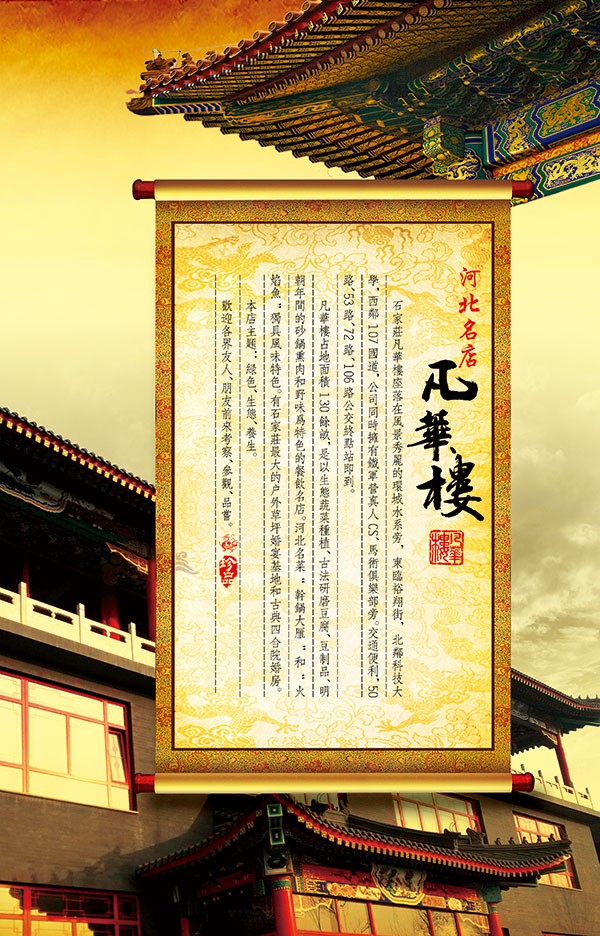 河北名店
凡華樓
凡華樓
石家莊凡華樓座落在風景秀麗的環城水系旁，東臨裕翔街，北鄰科技大
學，西鄰107國道，公司同時擁有鐵軍營真人CS、馬術俱樂部旁。交通便利，50
路、53路、72路、106路公交終點站即到。
凡華樓占地面積130餘畝，是以生態蔬菜種植、古法研磨豆腐、豆制品、明
朝年間的砂鍋熏肉和野味爲特色的餐飲名店。河北名菜"幹鍋大雁"和"火
焰魚"獨具風味特色。有石家莊最大的户外草坪婚宴基地和古典四合院婚房。
本店主題：綠色、生態、養生。
歡迎各界友人、朋友前來考察、參觀、品嘗。
珍品